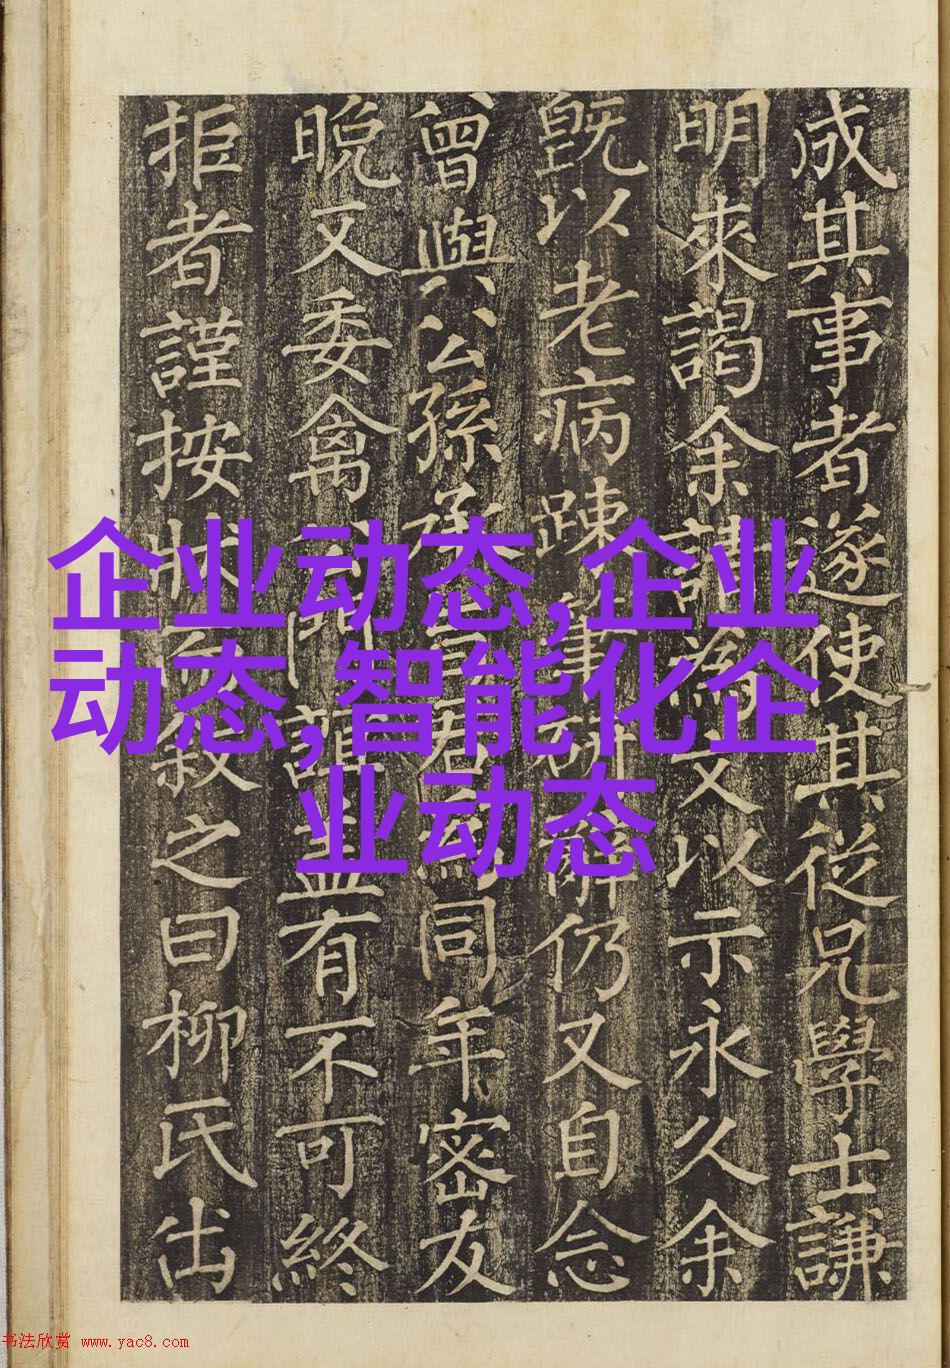 成其事者遂使其從兄學士謙
明來謁余請為文以示永久余
既以老病踈辭仍又自念
曾與公孫承同年密友
晚又委禽誼有不可終
拒者謹按狀叙之曰柳氏出
企业动态,企业
动态,智能化企
业动态
书法欣赏 www.yac8.com